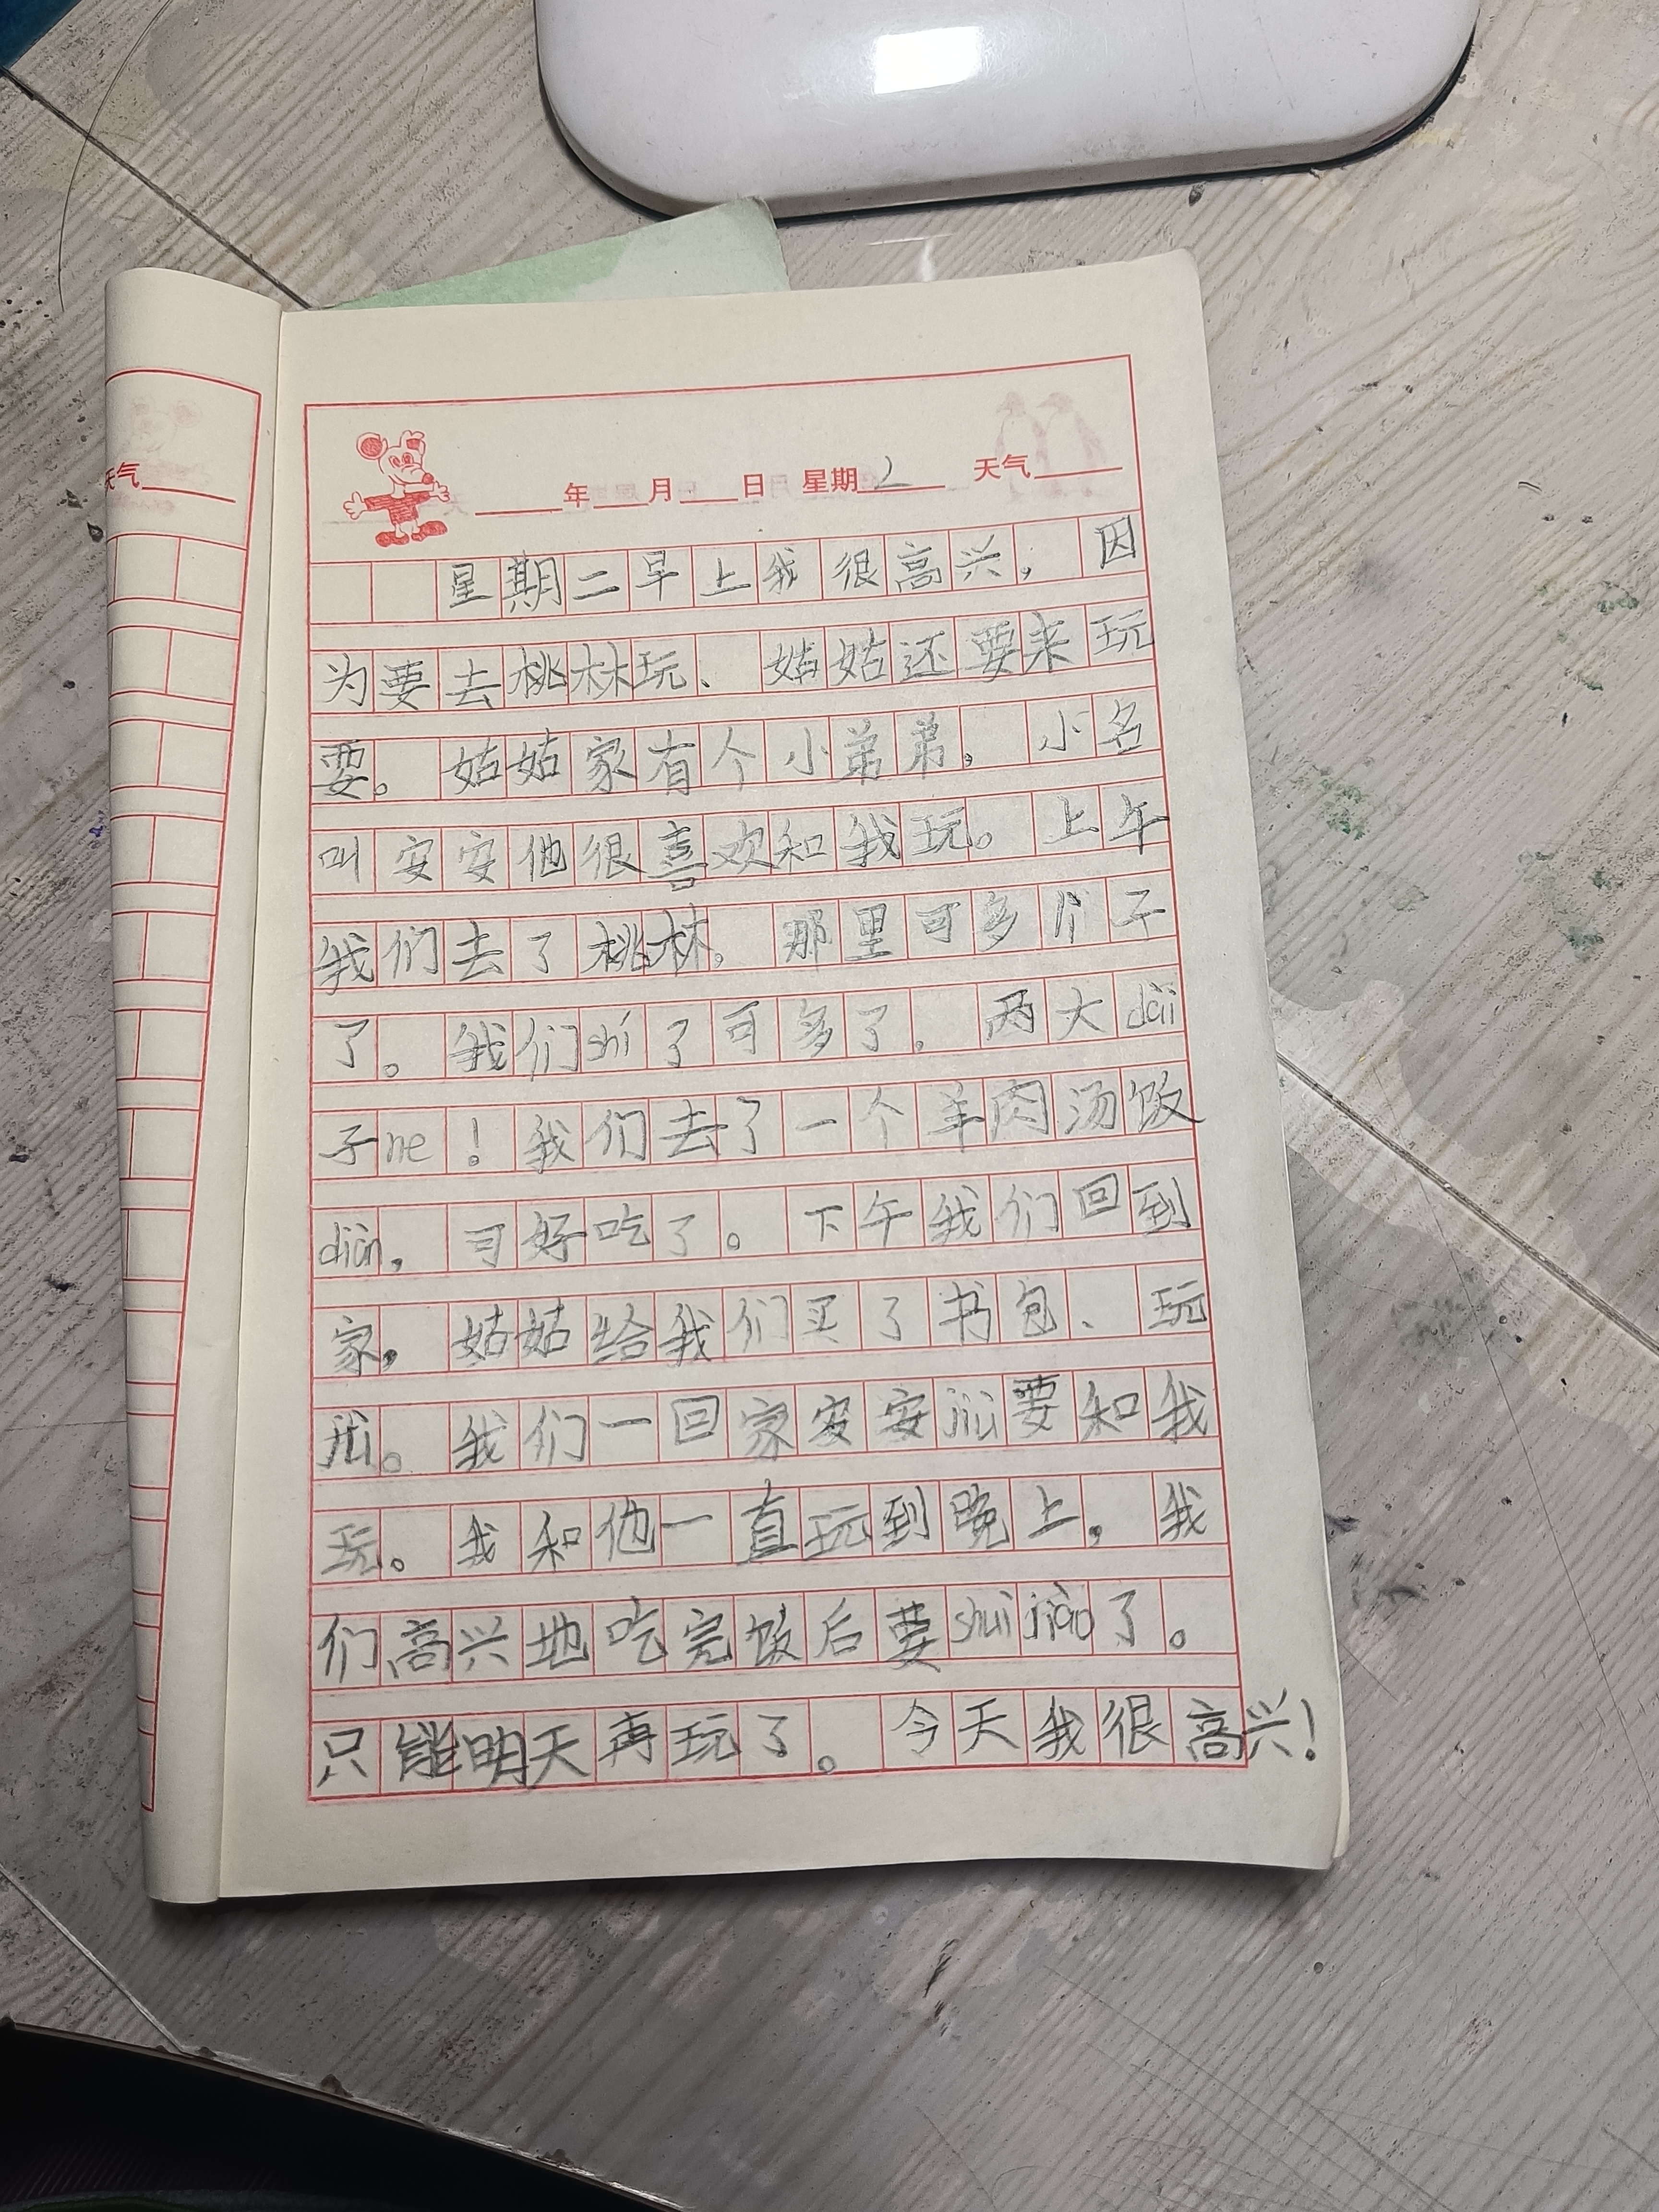 天气
年 月 日 星期 2 天气
星期二早上我很高兴，因
为要去桃林玩、姑姑还要来玩
耍。姑姑家有个小弟弟，小名
叫安安他很喜欢和我玩。上午
我们去了桃林，那里可多 子
了。我们shí了可多了，两大dài
子ne！我们去了一个羊肉汤饭
diàn，可好吃了。下午我们回到
家，姑姑给我们买了书包、玩
jù。我们一回家安安jiù要和我
玩。我和他一直玩到晚上，我
们高兴地吃完饭后要shuì jiào了。
只能明天再玩了。今天我很高兴！